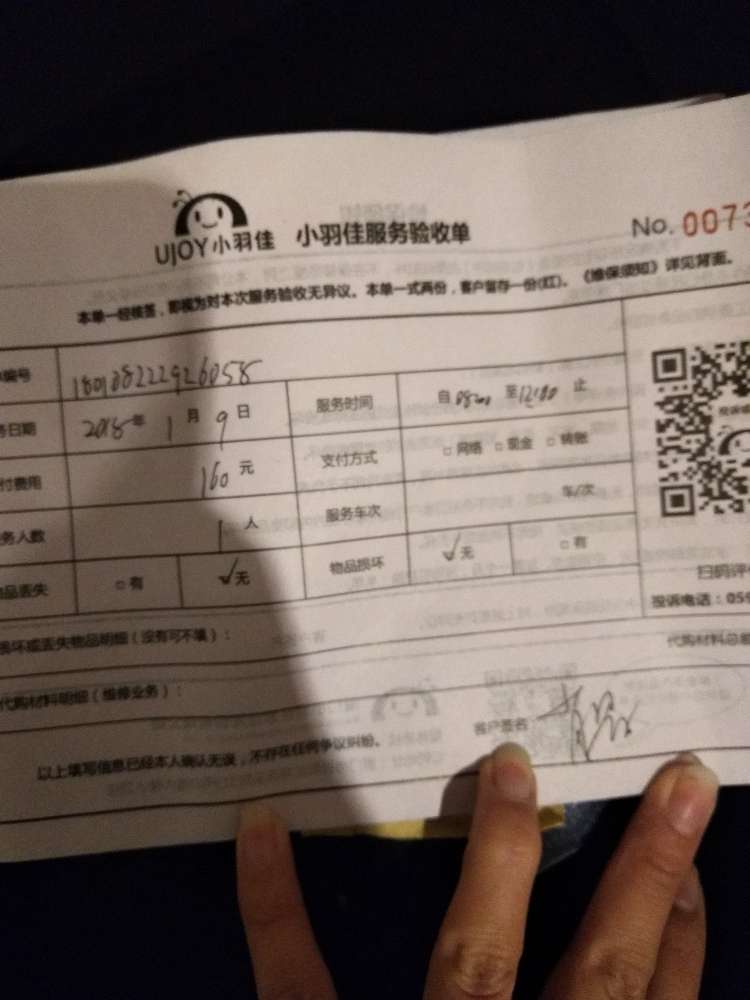 UJOY小羽佳 小羽佳服务验收单 No. 0073
本单一经核签，即视为对本次服务验收无异议。本单一式两份，客户留存一份(红)。《维保须知》详见背面。
编号 180108222926058
务日期 2018年 1月 9日 服务时间 自 08:00 至 12:00 止
付费用 160元 支付方式 □网络 □现金 □转账
务人数 1人 服务车次 车/次
品丢失 □有 ✓无 物品损坏 ✓无 □有
扫码评
投诉电话：059
损坏或丢失物品明细（没有可不填）： 代购材料总
代购材料明细（维修业务）：
以上填写信息已经本人确认无误，不存在任何争议纠纷。 客户签名